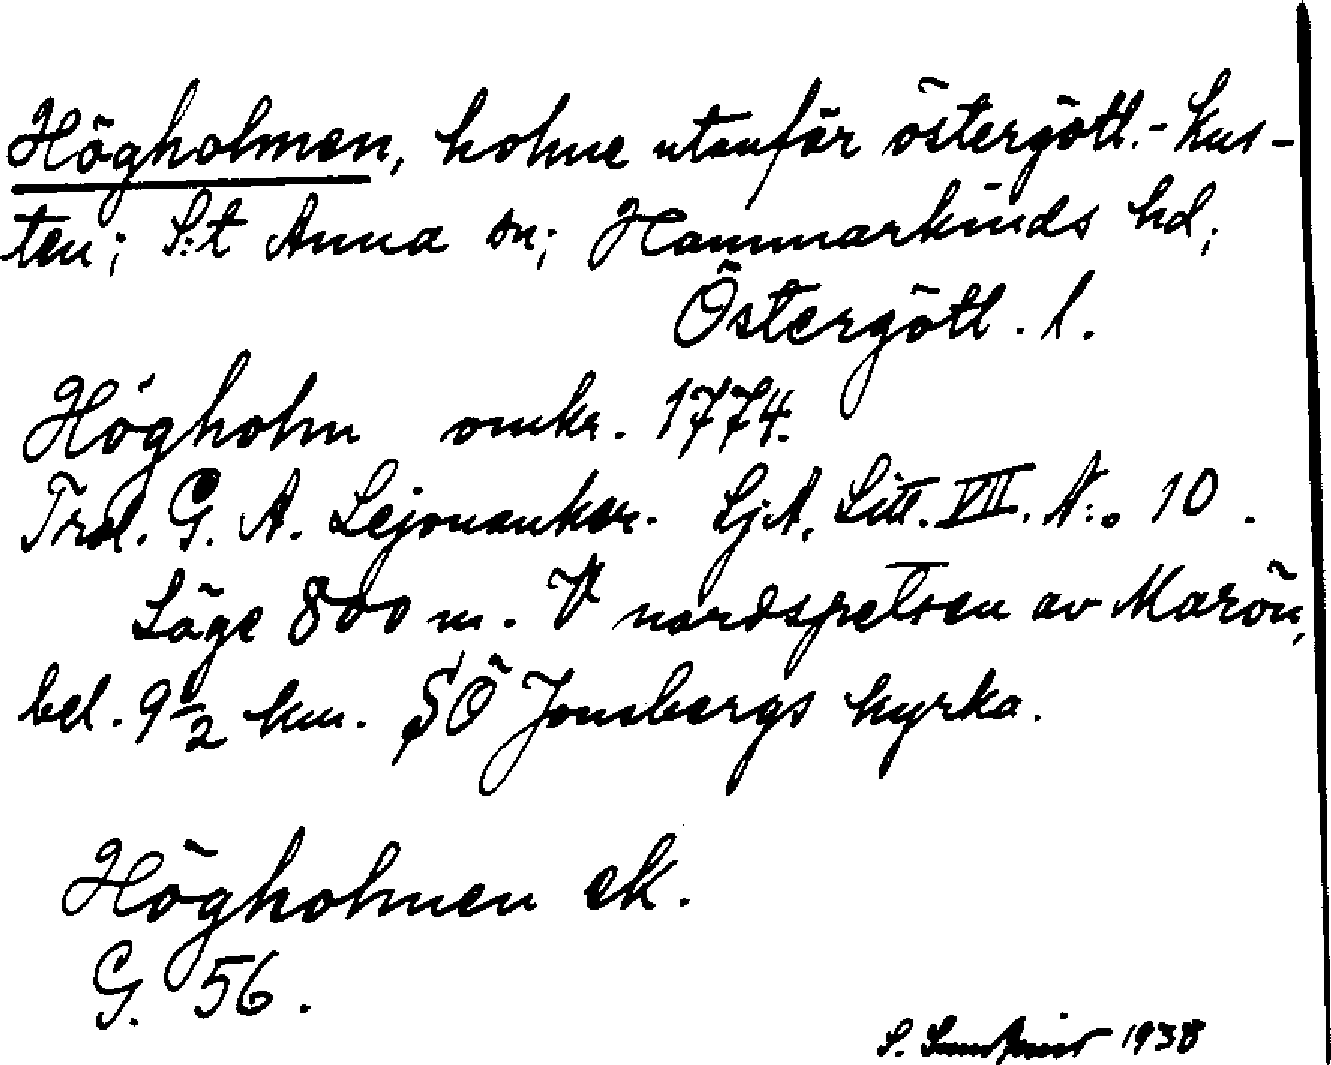 Högholmen, holme utanför östergötl.-kus-
ten; S:t Anna sn; Hammarkinds hd;
Östergötl. l.
Högholm omkr. 1774.
Trol. G. A. Lejonanker. Sj.A. Litt. VII. N:o 10.
Läge 800 m. V nordspetsen av Marön,
bel. 9 1/2 km. SÖ Jonsbergs kyrka.
Högholmen ek.
G. 56.
S. 1938